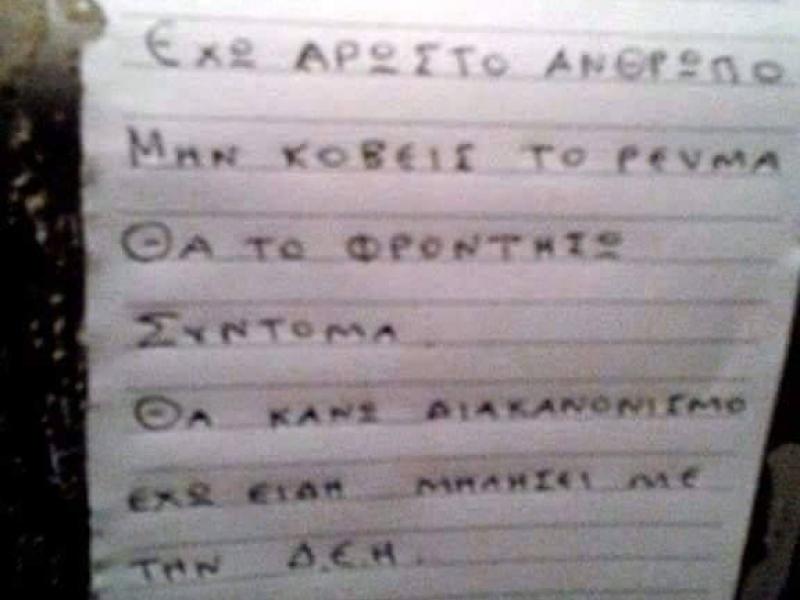 Εχω ΑΡΩΣΤΟ ΑΝΘΡΩΠΟ
ΜΗΝ ΚΟΒΕΙΣ ΤΟ ΡΕΥΜΑ
ΘΑ ΤΟ ΦΡΟΝΤΗΣΩ
ΣΥΝΤΟΜΑ.
ΘΑ ΚΑΝΩ ΔΙΑΚΑΝΟΝΙΣΜΟ
ΕΧΩ ΕΙΔΗ ΜΗΛΗΣΕΙ ΜΕ
ΤΗΝ Δ.Ε.Η.